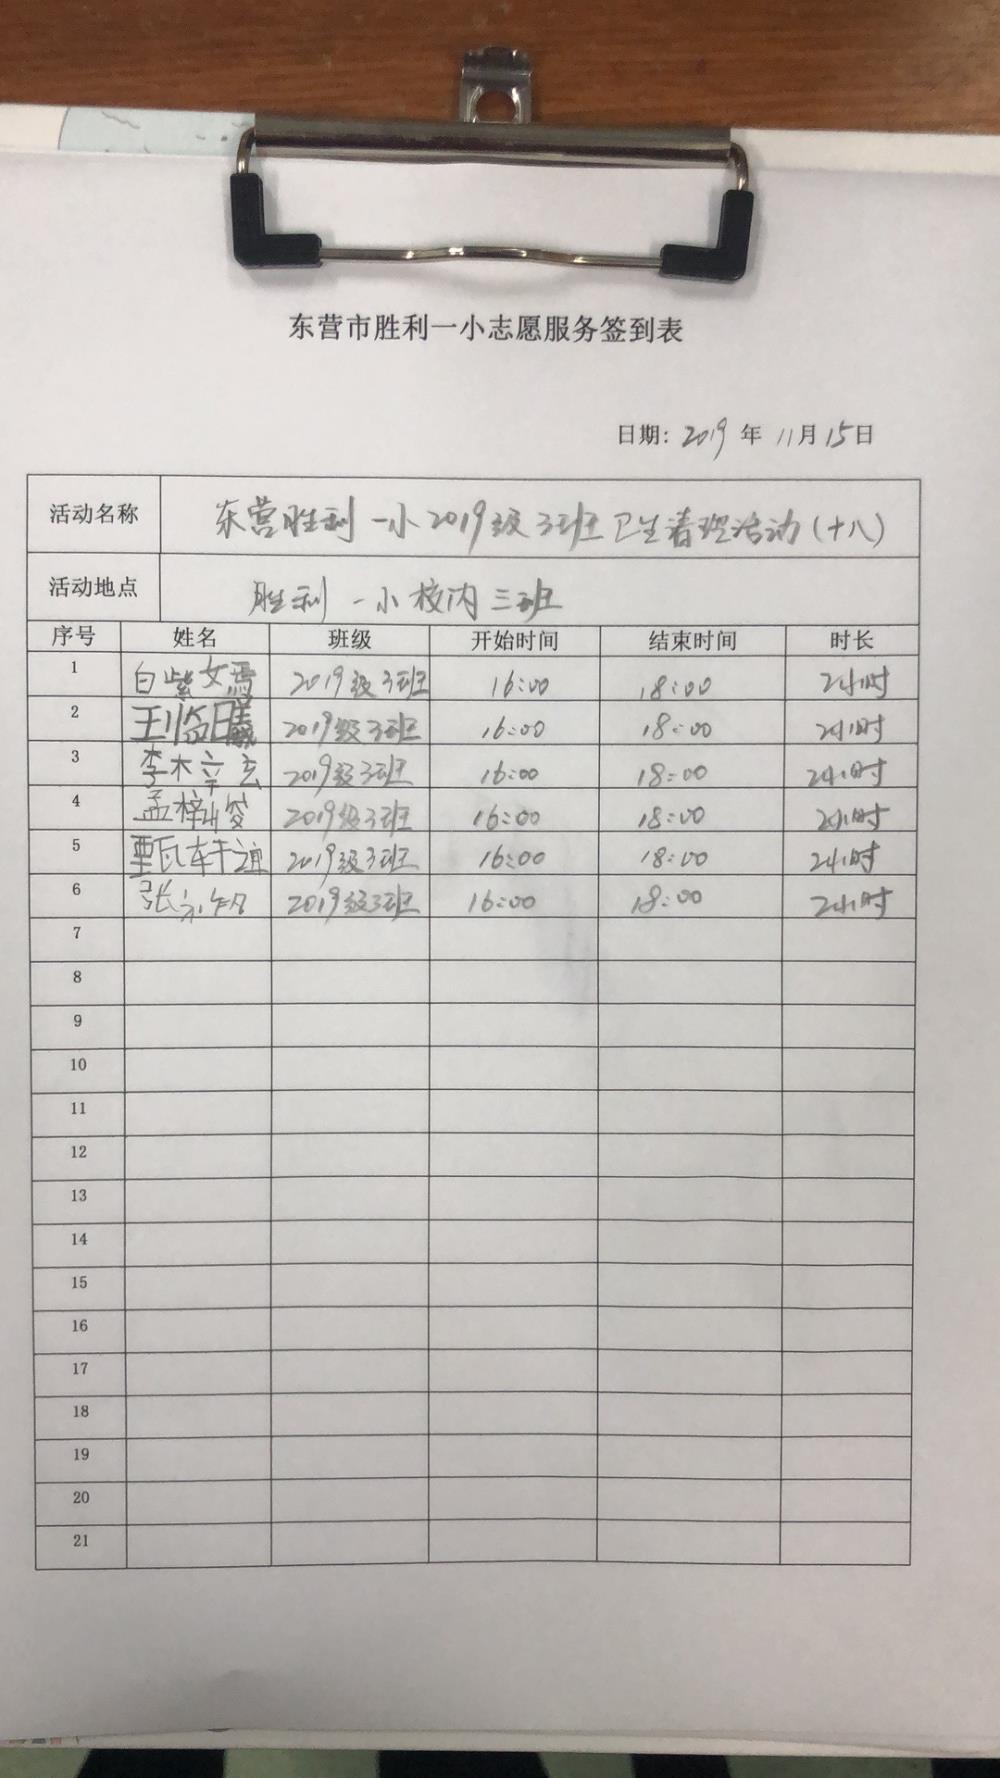 东营市胜利一小志愿服务签到表
日期: 2019 年 11月 15日
活动名称 东营胜利一小2019级3班卫生清理活动(十八)
活动地点 胜利一小校内三班
序号 姓名 班级 开始时间 结束时间 时长
1 白紫嫣 2019级3班 16:00 18:00 2小时
2 王临曦 2019级3班 16:00 18:00 2小时
3 李梓玄 2019级3班 16:00 18:00 2小时
4 孟梓峻 2019级3班 16:00 18:00 2小时
5 甄轩谊 2019级3班 16:00 18:00 2小时
6 张 2019级3班 16:00 18:00 2小时
7
8
9
10
11
12
13
14
15
16
17
18
19
20
21